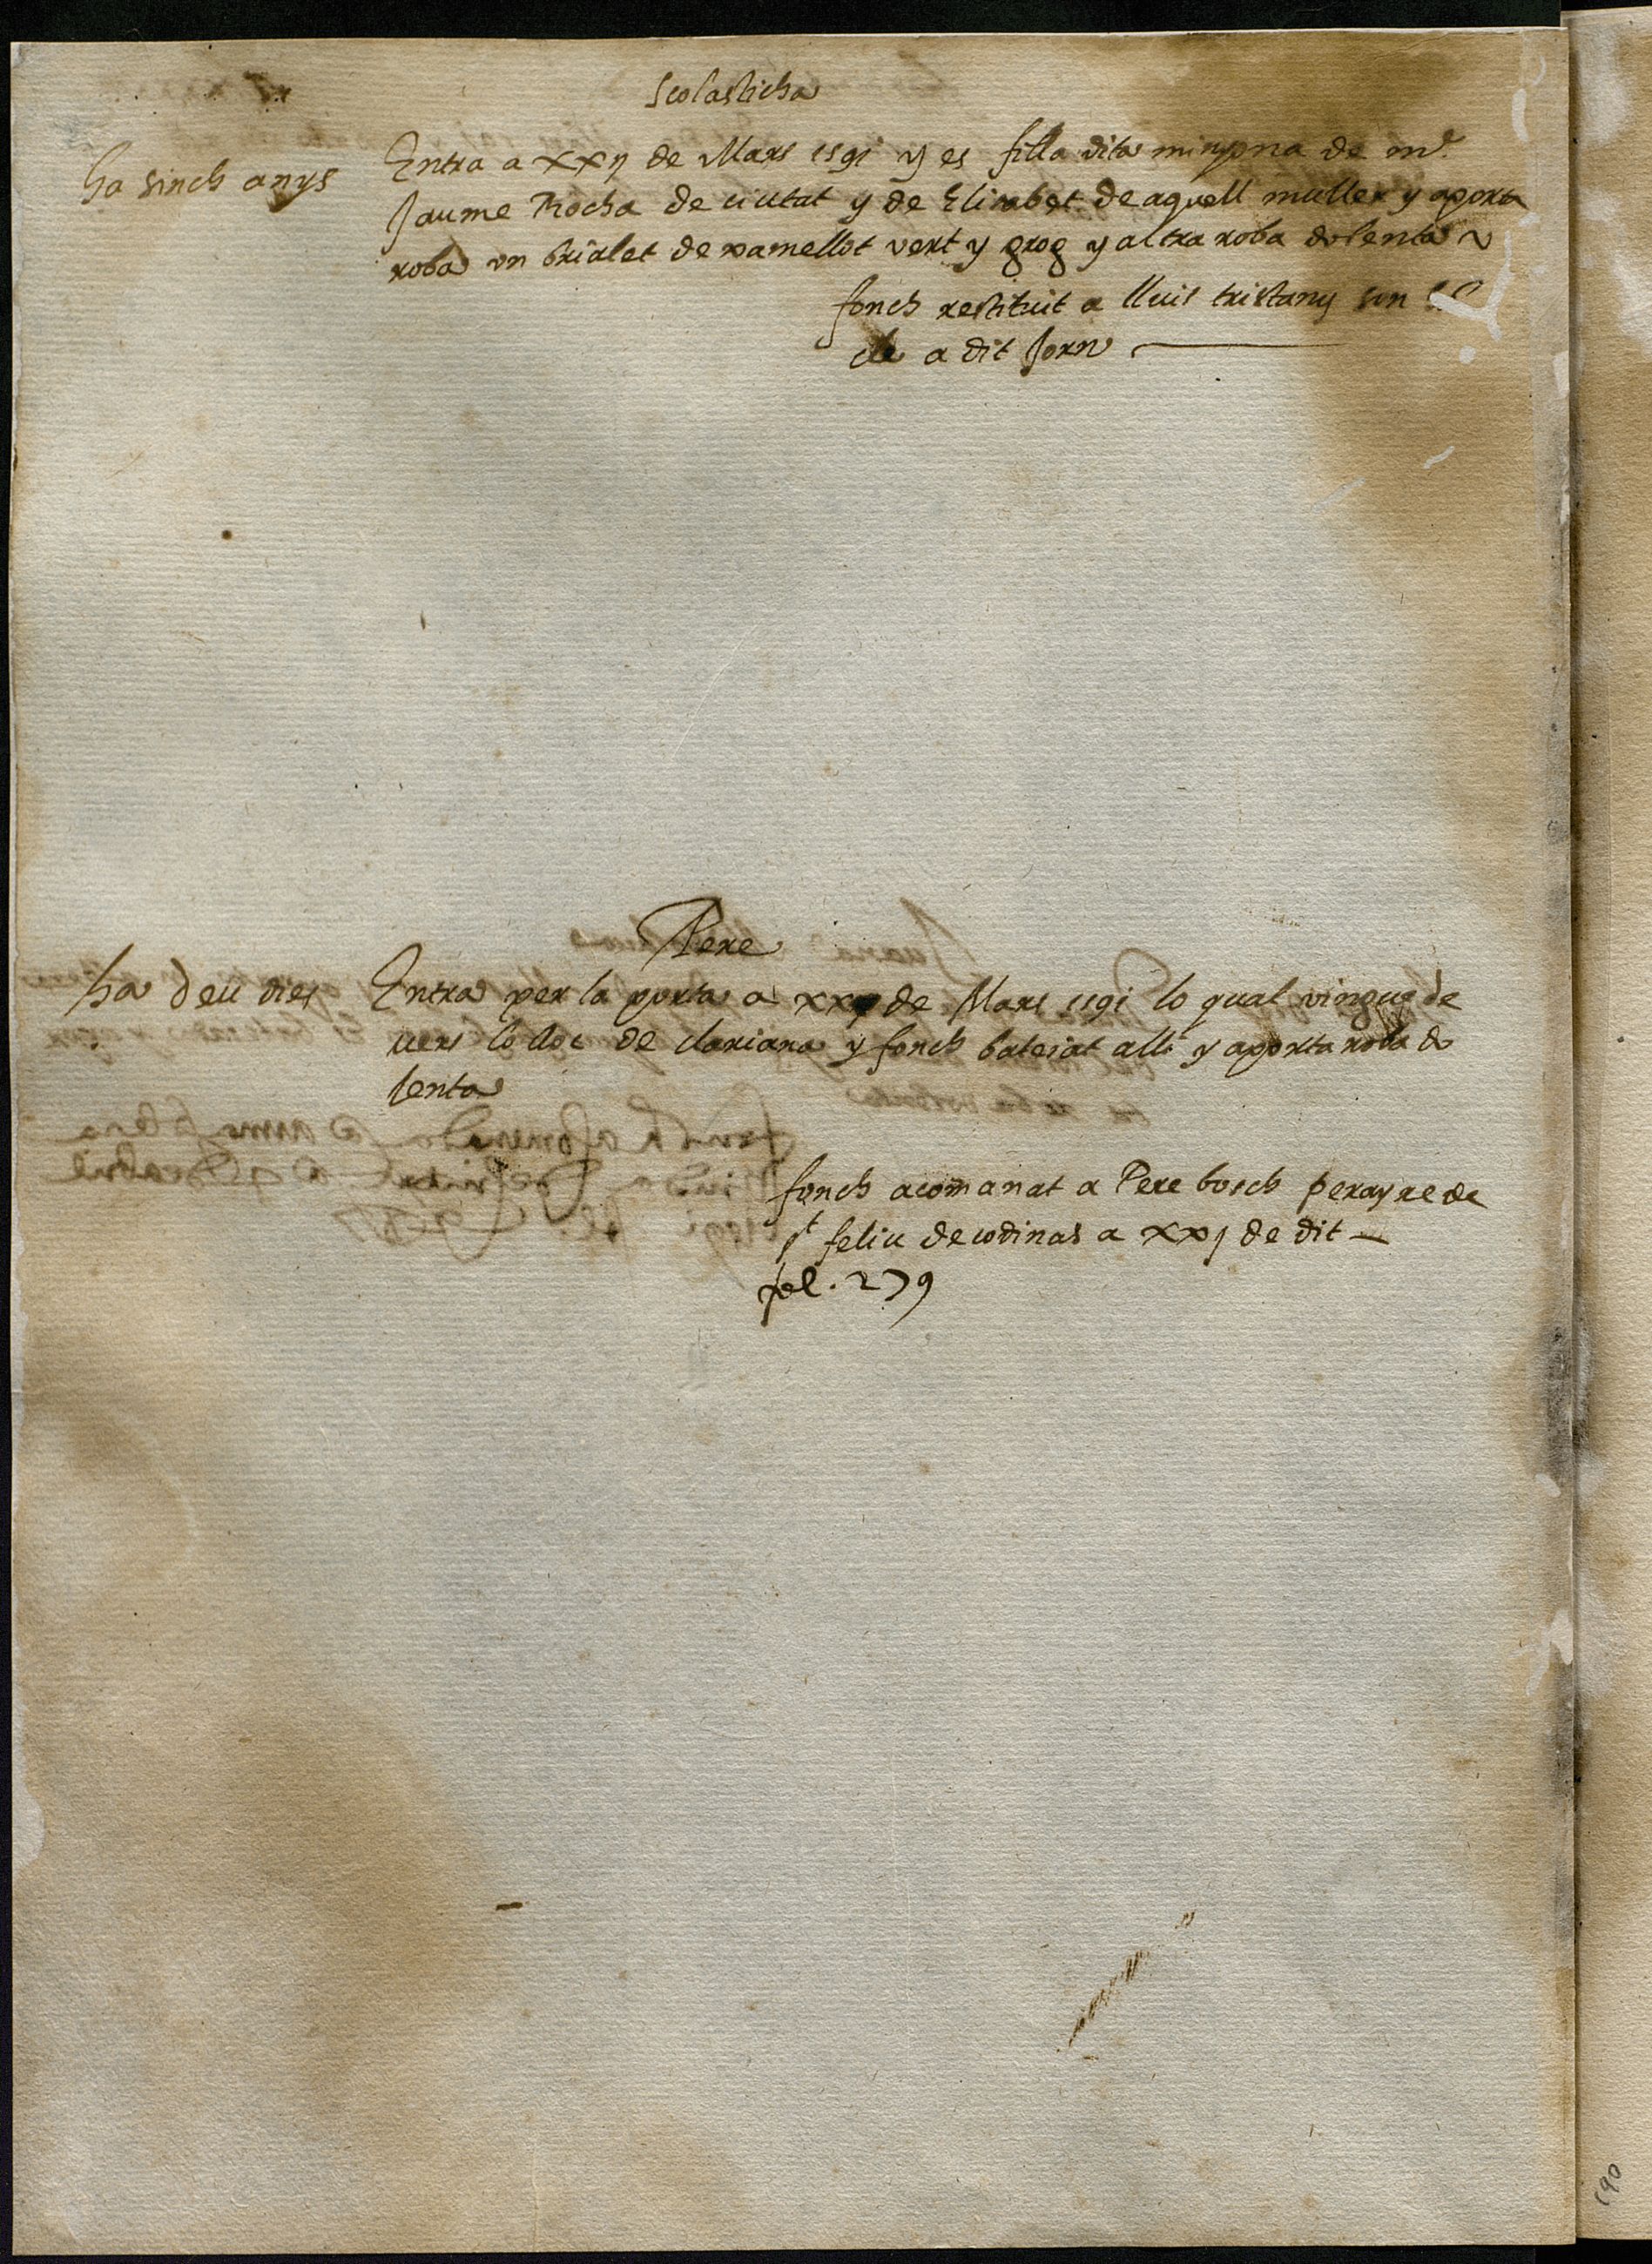 Scolasticha
ha sinch anys
Entra a xxij de Mars 1591 y es filla dita minyona de mº
Jaume Rocha de ciutat y de Elisabet de aquell muller y aporta
roba vn brialet de xamellot vert y grog y altra roba dolenta
fonch restituit a lluis tristany son
de a dit Jorn
Pere
ha deu dies
Entra per la porta a de Mars 1591 lo qual vingue de
uers lo lloc de clariana y fonch batejat alli y aporta roba do
lenta
fonch acomanat a Pere bosch perayre de
st feliu de codinas a xxj de dit
fol. 279
190